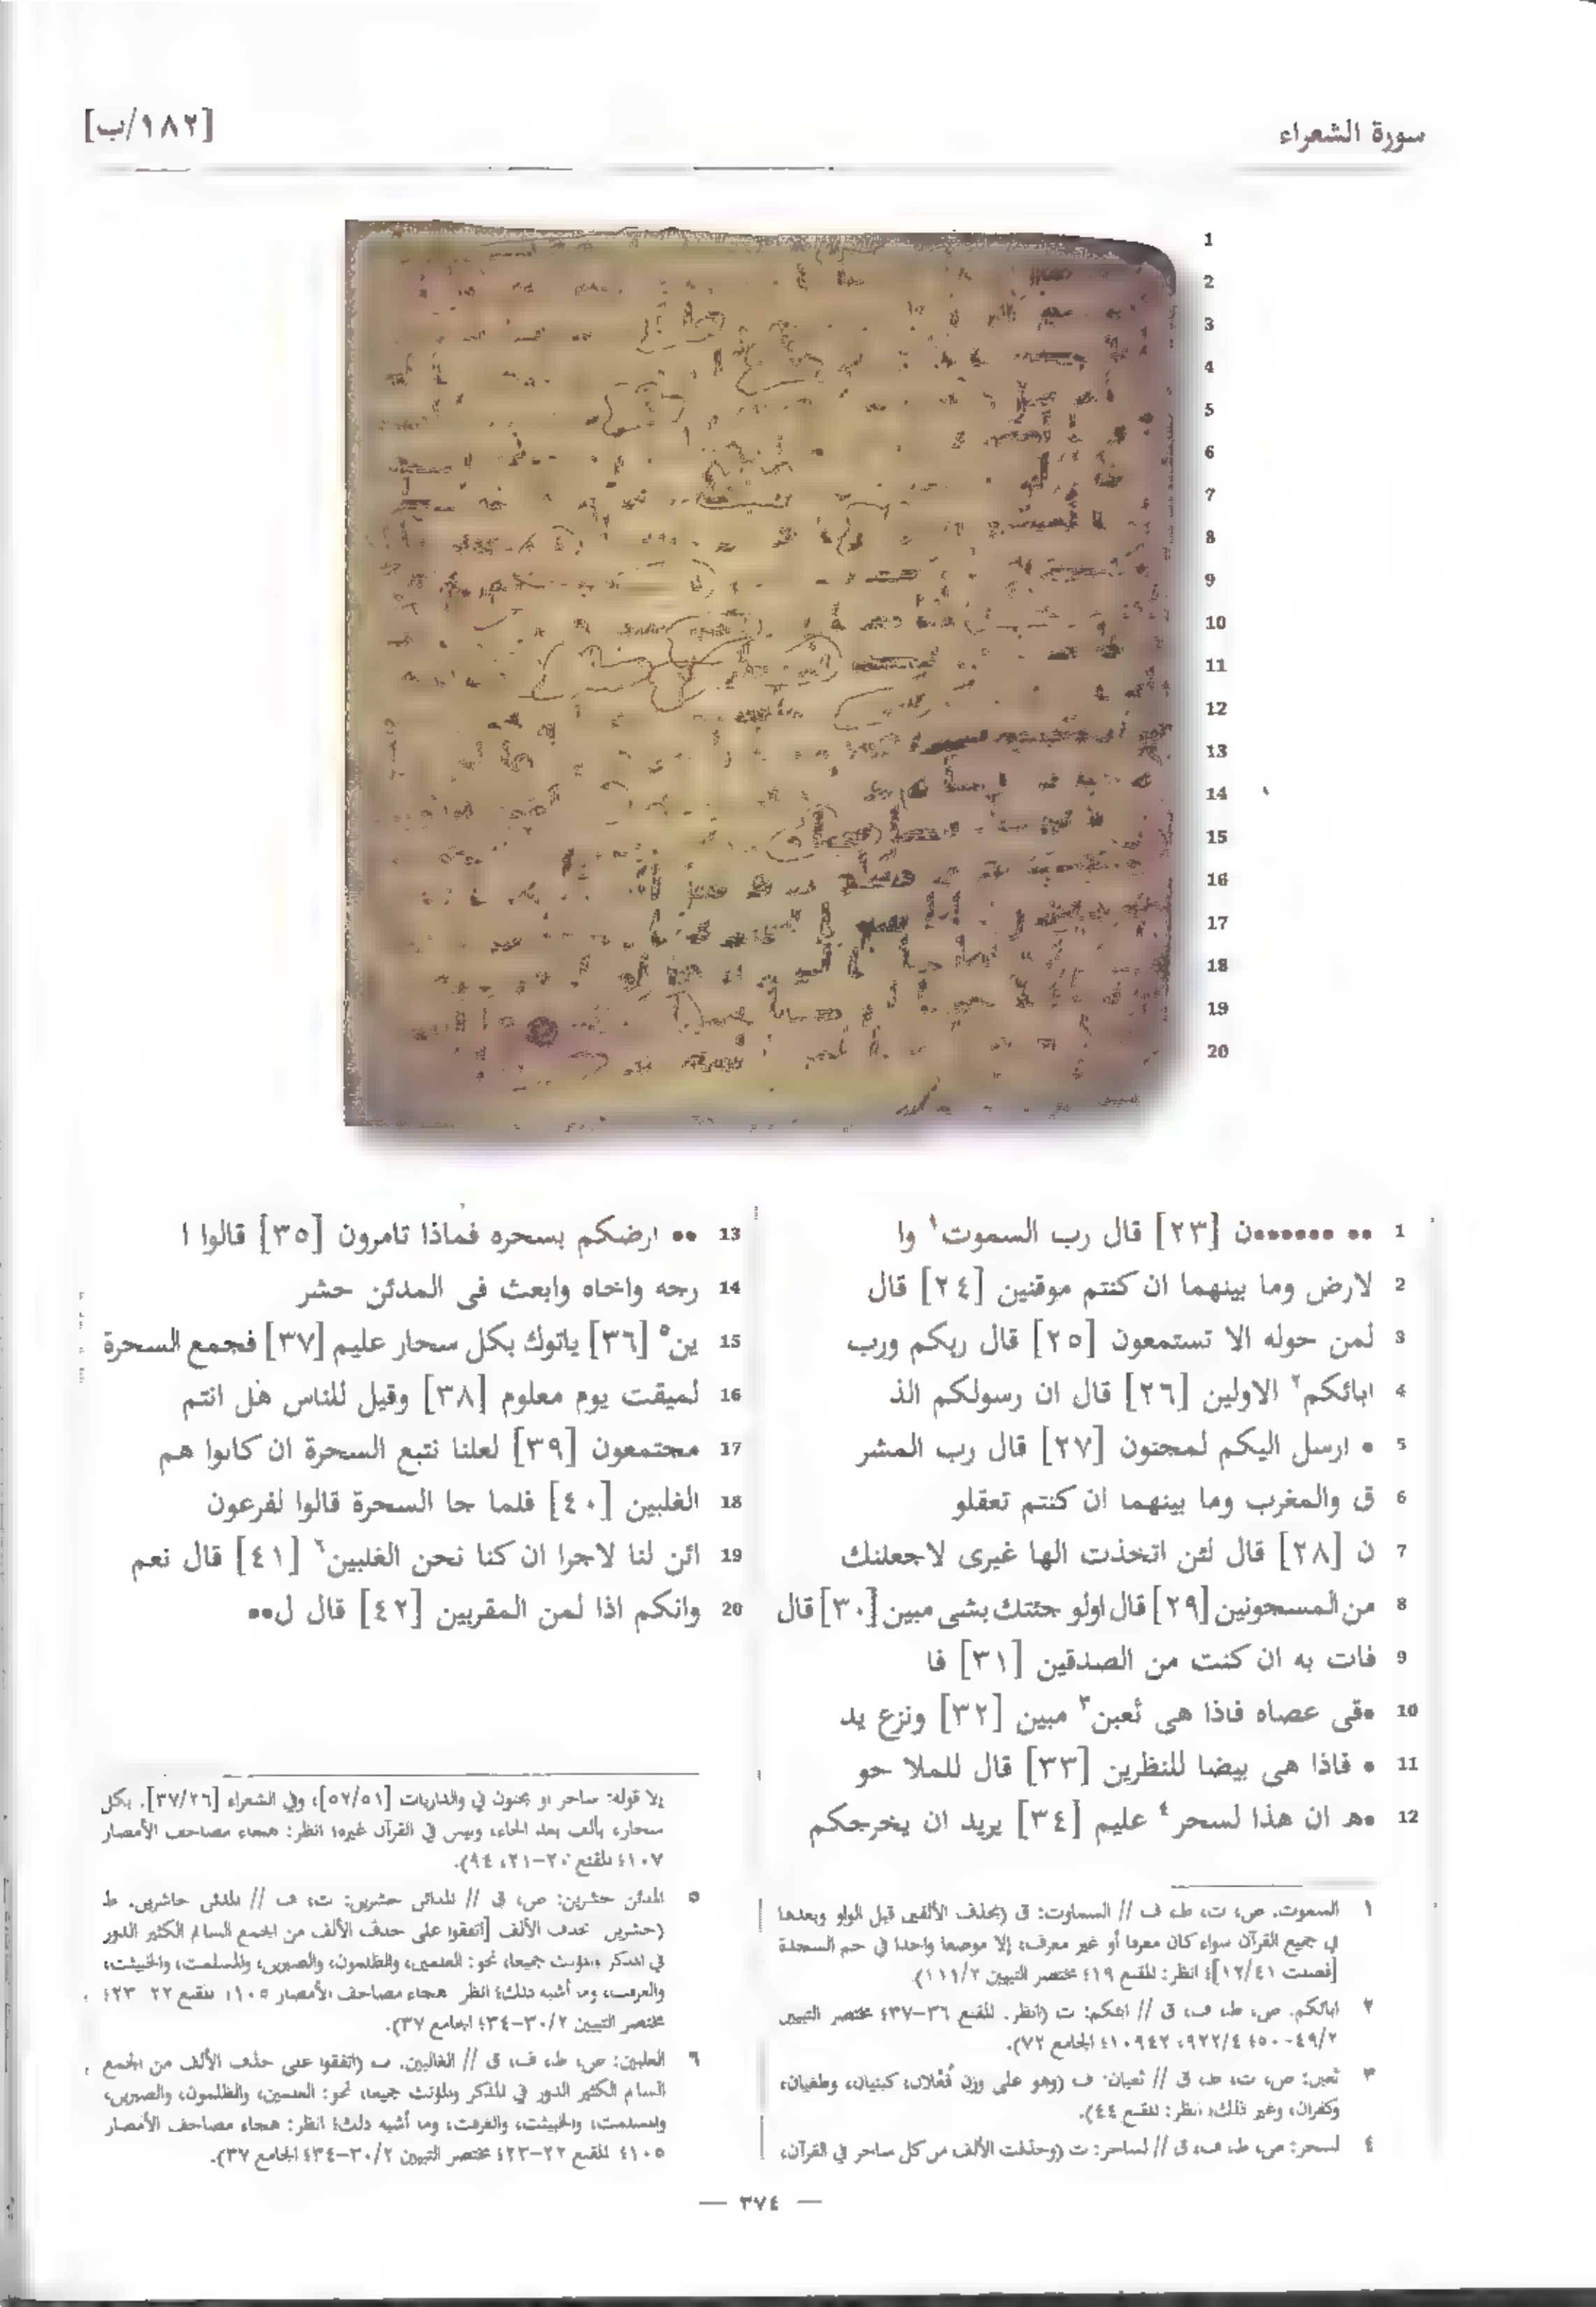 سورة الشعراء
[١٨٢/ب]
1
2
3
4
5
6
7
8
9
10
11
12
13
14
15
16
17
18
19
20
1 •• •••••••ن [٢٣] قال رب السموت١ وا
2 لارض وما بينهما ان كنتم موقنين [٢٤] قال
3 لمن حوله الا تستمعون [٢٥] قال ربكم ورب
4 ابائكم٢ الاولين [٢٦] قال ان رسولكم الذ
5 • ارسل اليكم لمجنون [٢٧] قال رب المشر
6 ق والمغرب وما بينهما ان كنتم تعقلو
7 ن [٢٨] قال لئن اتخذت الها غيرى لاجعلنك
8 من المسجونين [٢٩] قال اولو جئتك بشى مبين [٣٠] قال
9 فات به ان كنت من الصدقين [٣١] فا
10 •قى عصاه فاذا هى ثعبن٣ مبين [٣٢] ونزع يد
11 • فاذا هى بيضا للنظرين [٣٣] قال للملا حو
12 •ه ان هذا لسحر٤ عليم [٣٤] يريد ان يخرجكم
13 •• ارضكم بسحره فماذا تامرون [٣٥] قالوا ا
14 رجه واخاه وابعث فى المدئن حشر
15 ين٥ [٣٦] ياتوك بكل سحار عليم [٣٧] فجمع السحرة
16 لميقت يوم معلوم [٣٨] وقيل للناس هل انتم
17 مجتمعون [٣٩] لعلنا نتبع السحرة ان كانوا هم
18 الغلبين [٤٠] فلما جا السحرة قالوا لفرعون
19 ائن لنا لاجرا ان كنا نحن الغلبين٦ [٤١] قال نعم
20 وانكم اذا لمن المقربين [٤٢] قال ل••
١ السموت: ص، ت، ط، ف // السماوت: ق (بحذف الألفين قبل الواو وبعدها
في جميع القرآن سواء كان معرفا أو غير معرف، إلا موضعا واحدا في حم السجدة
[فصلت ١٢/٤١]؛ انظر: المقنع ١٩؛ مختصر التبيين ١١١/٢).
٢ ابائكم: ص، ط، ف، ق // ابئكم: ت (انظر: المقنع ٣٦-٣٧؛ مختصر التبيين
٤٩/٢-٥٠؛ ٩٢٢/٤، ٩٤٢؛ الجامع ٧٢).
٣ ثعبن: ص، ت، ط، ق // ثعبان: ف (وهو على وزن فُعْلان، كبنيان، وطغيان،
وكفران، وغير ذلك؛ انظر: المقنع ٤٤).
٤ لسحر: ص، ط، ف، ق // لساحر: ت (وحذفت الألف من كل ساحر في القرآن،
إلا قوله: ساحر او مجنون في والذاريات [٥٢/٥١]، وفي الشعراء [٣٧/٢٦]. بكل
سحار، بألف بعد الحاء، وليس في القرآن غيره؛ انظر: هجاء مصاحف الأمصار
١٠٧؛ المقنع ٢٠-٢١، ٩٤).
٥ المدئن حشرين: ص، ق // المدائن حشرين: ت، ف // المدئن حاشرين: ط
(حشرين بحذف الألف [اتفقوا على حذف الألف من الجمع السالم الكثير الدور
في المذكر والمؤنث جميعا، نحو: العلمين، والظلمون، والصبرين، والمسلمت، والخبيثت،
والغرفت، وما أشبه ذلك؛ انظر: هجاء مصاحف الأمصار ١٠٥؛ المقنع ٢٢-٢٣؛
مختصر التبيين ٣٠/٢-٣٤؛ الجامع ٣٧).
٦ الغلبين: ص، ط، ف، ق // الغالبين: ت (اتفقوا على حذف الألف من الجمع
السالم الكثير الدور في المذكر والمؤنث جميعا، نحو: العلمين، والظلمون، والصبرين،
والمسلمت، والخبيثت، والغرفت، وما أشبه ذلك؛ انظر: هجاء مصاحف الأمصار
١٠٥؛ المقنع ٢٢-٢٣؛ مختصر التبيين ٣٠/٢-٣٤؛ الجامع ٣٧).
— ٣٧٤ —